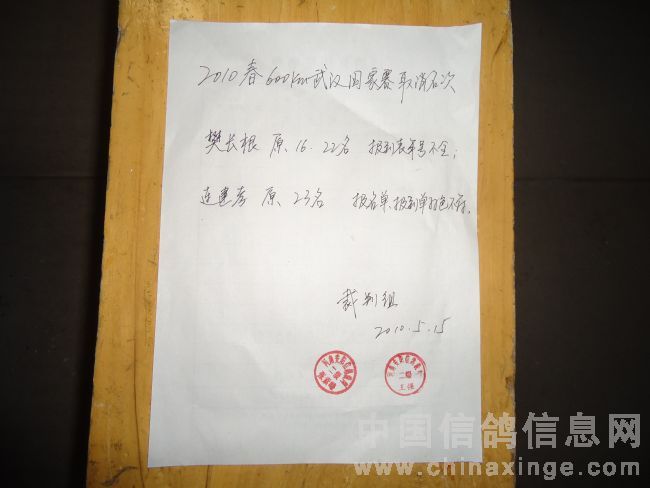 2010春600km武汉国家赛取消名次
樊长根 原、16.22名 报到表单号不全；
连建彦 原、23名 报名单、报到单羽色不符。
裁判组
2010.5.15
二级
王强
中国信鸽信息网
www.chinaxinge.com